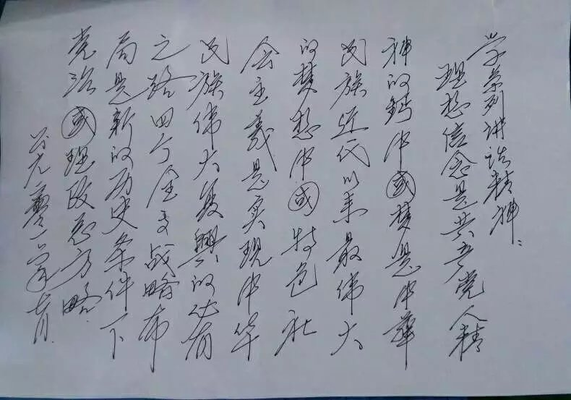 学系列讲话精神：
理想信念是共产党人精
神的钙中国梦是中华
民族近代以来最伟大
的梦想中国特色社
会主义是实现中华
民族伟大复兴的必有
之路四个全面战略布
局是新的历史条件下
党治国理政总方略